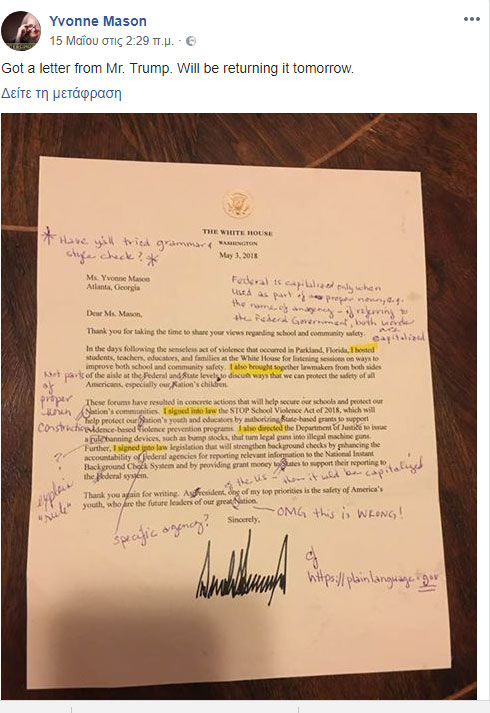 Yvonne Mason
15 Μαΐου στις 2:29 π.μ. ·
Got a letter from Mr. Trump. Will be returning it tomorrow.
Δείτε τη μετάφραση
THE WHITE HOUSE
WASHINGTON
May 3, 2018
* Have y'all tried grammar &
style check? *
Ms. Yvonne Mason
Atlanta, Georgia
Federal is capitalized only when
used as part of proper noun, e.g.
the name of an agency - if referring to
the Federal Government, both words
are
capitalized
Dear Ms. Mason,
Thank you for taking the time to share your views regarding school and community safety.
In the days following the senseless act of violence that occurred in Parkland, Florida, I hosted
students, teachers, educators, and families at the White House for listening sessions on ways to
improve both school and community safety. I also brought together lawmakers from both sides
of the aisle at the Federal and State levels to discuss ways that we can protect the safety of all
Americans, especially our Nation's children.
Not part
of
proper
noun
construction
These forums have resulted in concrete actions that will help secure our schools and protect our
Nation's communities. I signed into law the STOP School Violence Act of 2018, which will
help protect our Nation's youth and educators by authorizing State-based grants to support
evidence-based violence prevention programs. I also directed the Department of Justice to issue
a rule banning devices, such as bump stocks, that turn legal guns into illegal machine guns.
Further, I signed into law legislation that will strengthen background checks by enhancing the
accountability of Federal agencies for reporting relevant information to the National Instant
Background Check System and by providing grant money to States to support their reporting to
the Federal system.
?
explain
"rule"
of the US - then it would be capitalized
Thank you again for writing. As President, one of my top priorities is the safety of America's
youth, who are the future leaders of our great Nation.
OMG this is WRONG!
specific agency?
Sincerely,
https://plainlanguage.gov